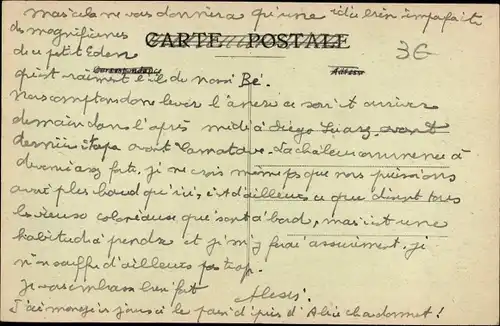 mais cela ne vous donnera qu'une idée bien imparfaite
des magnificences
CARTE POSTALE
3€
du petit Eden
Correspondance
Adresse
qu'est vraiment l'île de Nossi Bé.
Nous comptons donc lever l'ancre ce soir et arriver
demain dans l'après midi à Diégo Suarez avant
dernière étape avant Tamatave. La chaleur commence à
devenir assez forte, je ne crois même pas que nous puissions
avoir plus chaud qu'ici, c'est d'ailleurs ce que disent tous
les vieux coloniaux qui sont à bord, mais c'est une
habitude à prendre et je m'y ferai assurément, je
n'en souffre d'ailleurs pas trop.
je vous embrasse bien fort
Alexis.
J'ai mangé ces jours ci le pain d'épice d'Alice Chardonnet!